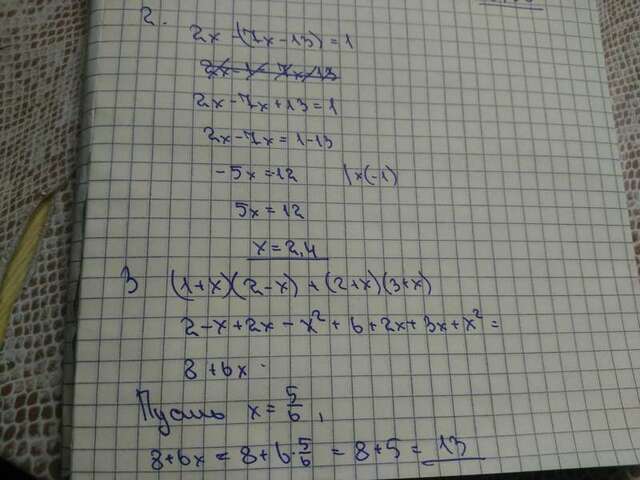 2.
2x-(7x-13)=1
2x-7x+13=1
2x-7x=1-13
-5x=12 |x(-1)
5x=12
x=2,4
3 (1+x)(2-x)+(2+x)(3+x)
2-x+2x-x²+6+2x+3x+x²=
8+6x.
Пусть x=5/6,
8+6x=8+6·5/6=8+5=13